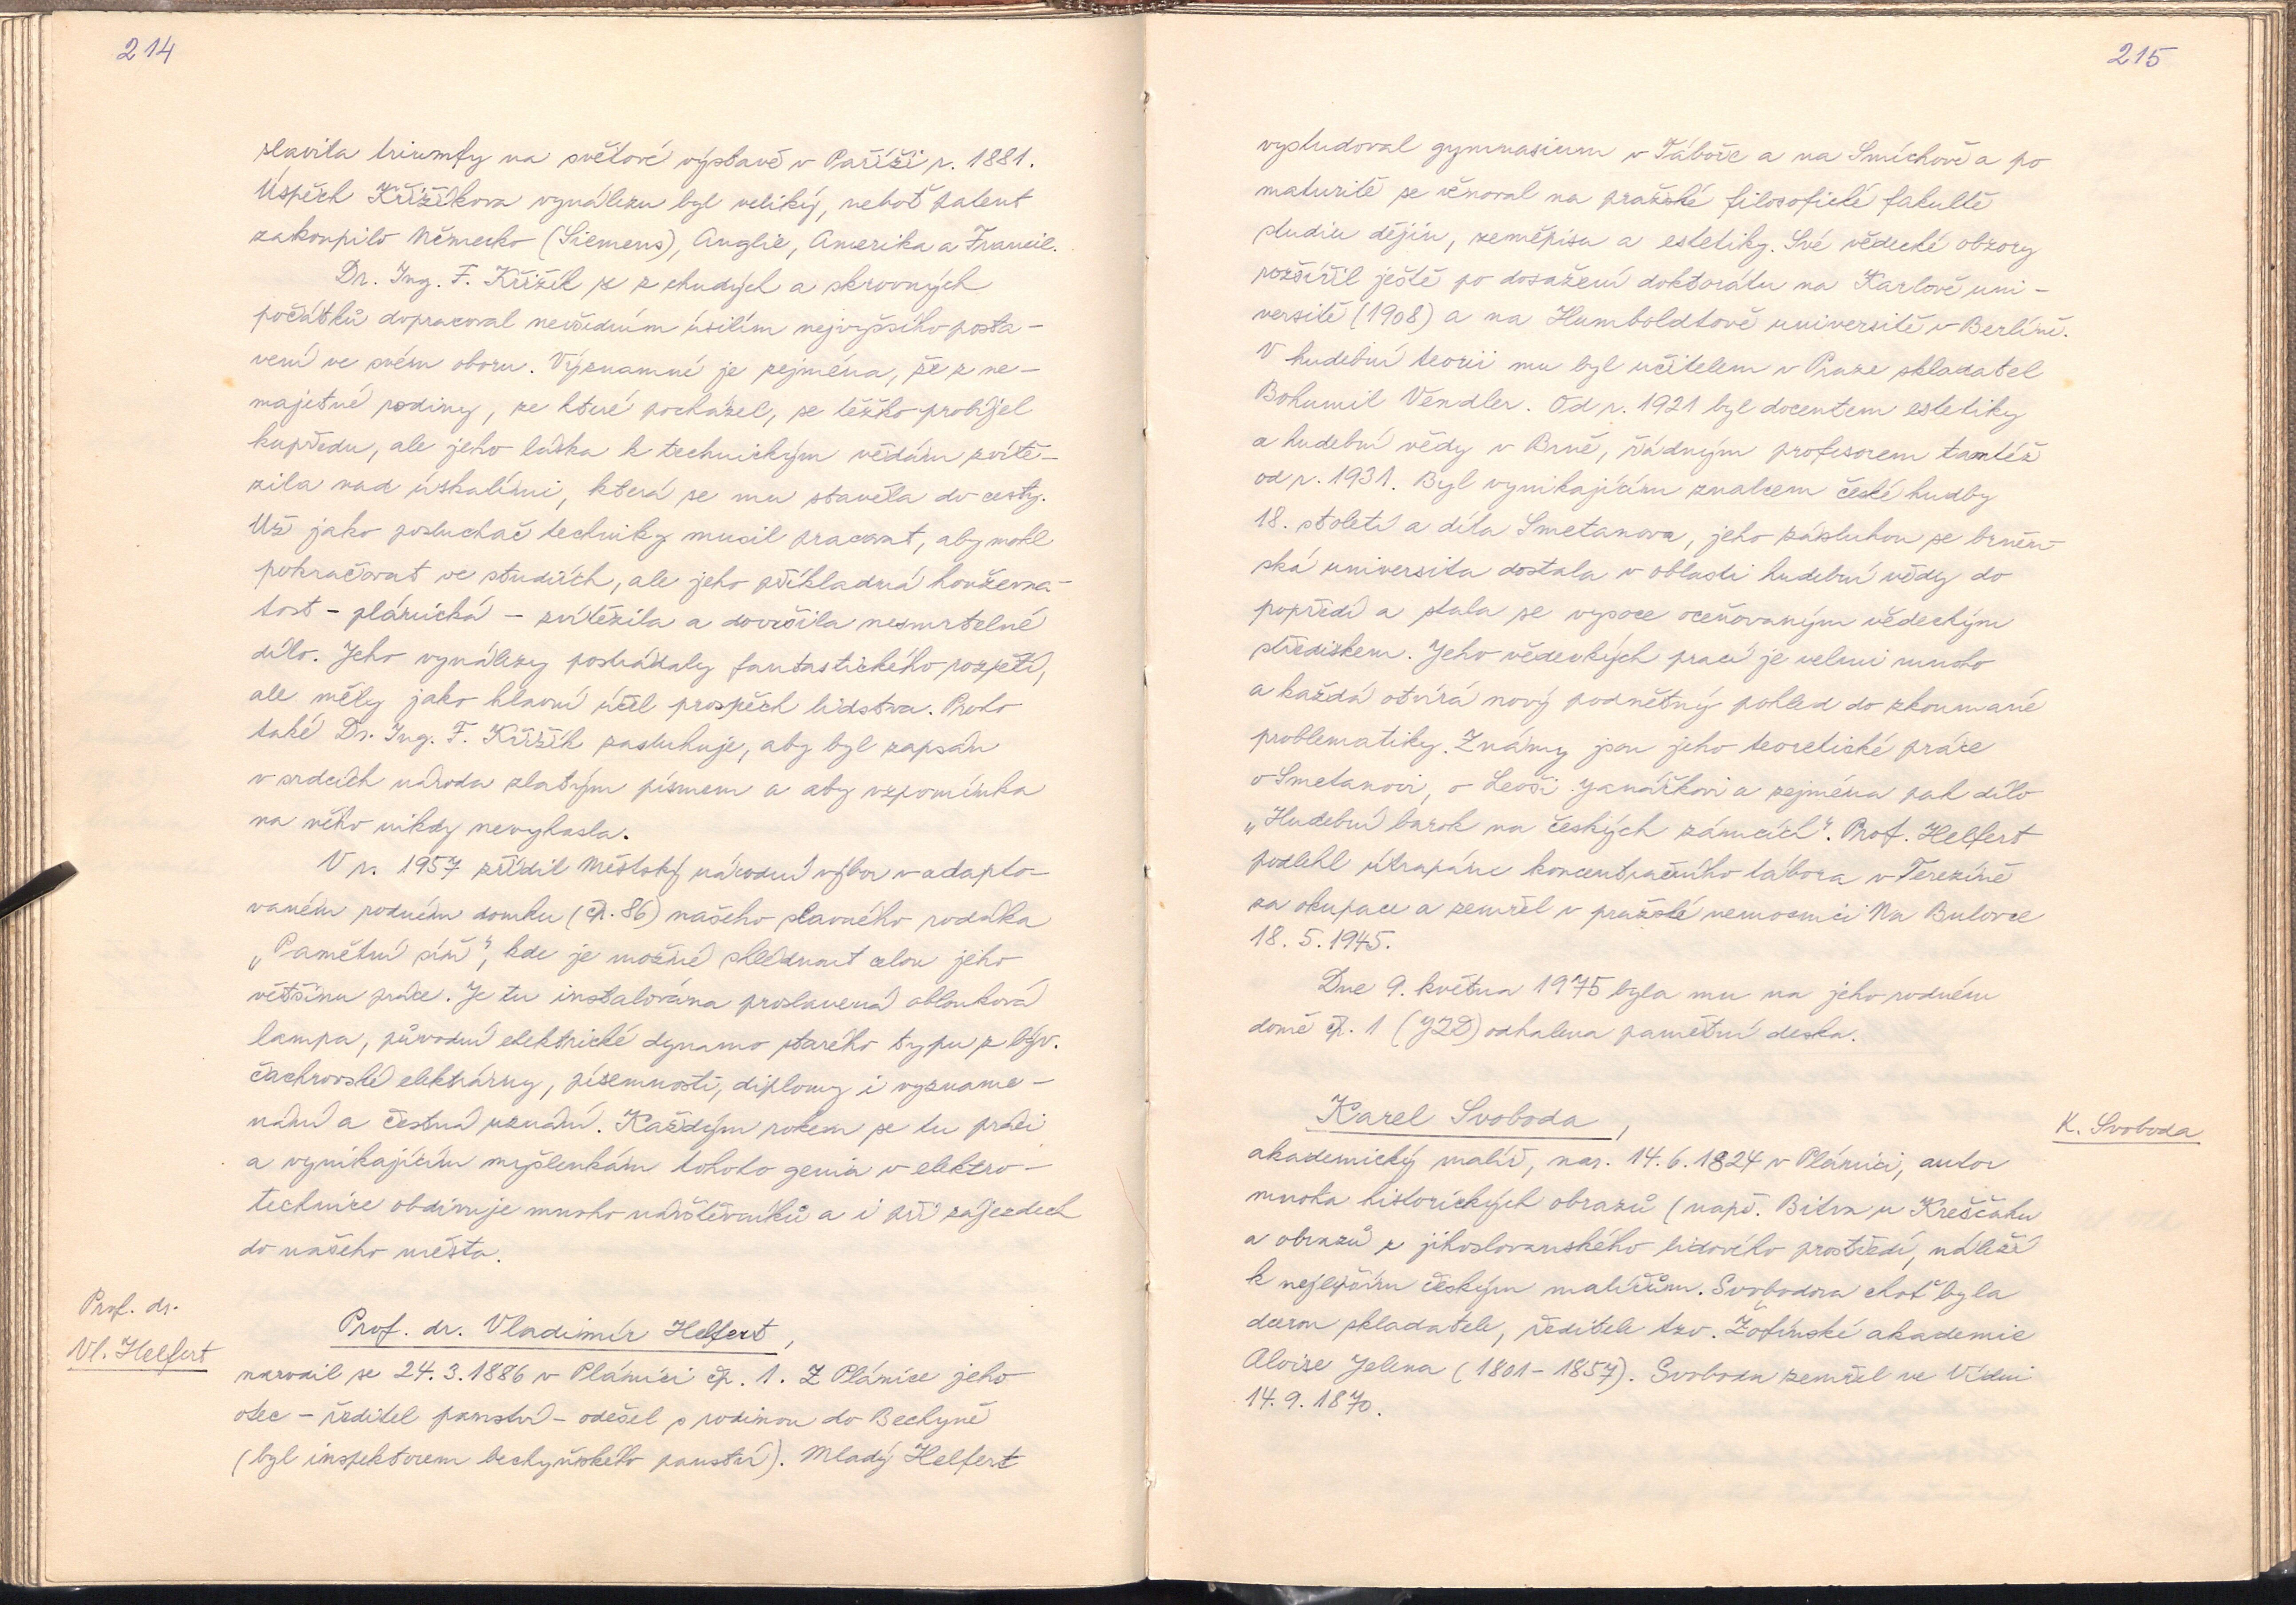 214
slavila triumfy na světové výstavě v Paříži r. 1881.
Úspěch Křižíkova vynálezu byl veliký, neboť patent
zakoupilo Německo (Siemens), Anglie, Amerika a Francie.
Dr. Ing. F. Křižík se z chudých a skrovných
počátků dopracoval nevšedním úsilím nejvyššího posta-
vení ve svém oboru. Významné je zejména, že z ne-
majetné rodiny, ze které pocházel, se těžko probíjel
kupředu, ale jeho láska k technickým vědám zvítě-
zila nad úskalími, která se mu stavěla do cesty.
Už jako posluchač techniky musil pracovat, aby mohl
pokračovat ve studiích, ale jeho příkladná houževna-
tost - plánická - zvítězila a dovršila nesmrtelné
dílo. Jeho vynálezy postrádaly fantastického rozpětí,
ale měly jako hlavní účel prospěch lidstva. Proto
také Dr. Ing. F. Křižík zasluhuje, aby byl zapsán
v srdcích národa zlatým písmem a aby vzpomínka
na něho nikdy nevyhasla.
V r. 1957 zřídil Městský národní výbor v adapto-
vaném rodném domku (čp. 86) našeho slavného rodáka
„Pamětní síň", kde je možné shlédnout celou jeho
většinu práce. Je tu instalována proslavená oblouková
lampa, původní elektrické dynamo starého typu z býv.
čachrovské elektrárny, písemnosti, diplomy i vyzname-
nání a čestná uznání. Každým rokem se tu práci
a vynikajícím myšlenkám tohoto genia v elektro-
technice obdivuje mnoho návštěvníků a i při zájezdech
do našeho města.
Prof. dr.
Vl. Helfert
Prof. dr. Vladimír Helfert,
narodil se 24. 3. 1886 v Plánici čp. 1. Z Plánice jeho
otec - ředitel panství - odešel s rodinou do Bechyně
(byl inspektorem bechyňského panství). Mladý Helfert
215
vystudoval gymnasium v Táboře a na Smíchově a po
maturitě se věnoval na pražské filosofické fakultě
studiu dějin, zeměpisu a estetiky. Své vědecké obzory
rozšířil ještě po dosažení doktorátu na Karlově uni-
versitě (1908) a na Humboldtově universitě v Berlíně.
V hudební teorii mu byl učitelem v Praze skladatel
Bohumil Vendler. Od r. 1921 byl docentem estetiky
a hudební vědy v Brně, řádným profesorem tamtéž
od r. 1931. Byl vynikajícím znalcem české hudby
18. století a díla Smetanova, jeho zásluhou se brněn-
ská universita dostala v oblasti hudební vědy do
popředí a stala se vysoce oceňovaným vědeckým
střediskem. Jeho vědeckých prací je velmi mnoho
a každá otvírá nový podnětný pohled do zkoumané
problematiky. Známy jsou jeho teoretické práce
o Smetanovi, o Leoši Janáčkovi a zejména pak dílo
„Hudební barok na českých zámcích". Prof. Helfert
podlehl útrapám koncentračního tábora v Terezíně
za okupace a zemřel v pražské nemocnici Na Bulovce
18. 5. 1945.
Dne 9. května 1975 byla mu na jeho rodném
domě čp. 1 (JZD) odhalena pamětní deska.
Karel Svoboda,
K. Svoboda
akademický malíř, nar. 14. 6. 1824 v Plánici, autor
mnoha historických obrazů (např. Bitva u Kreščaku
a obrazů z jihoslovanského lidového prostředí, náleží
k nejlepším českým malířům. Svobodova choť byla
dcerou skladatele, ředitele tzv. Žofínské akademie
Aloise Jelena (1801-1857). Svoboda zemřel ve Vídni
14. 9. 1870.